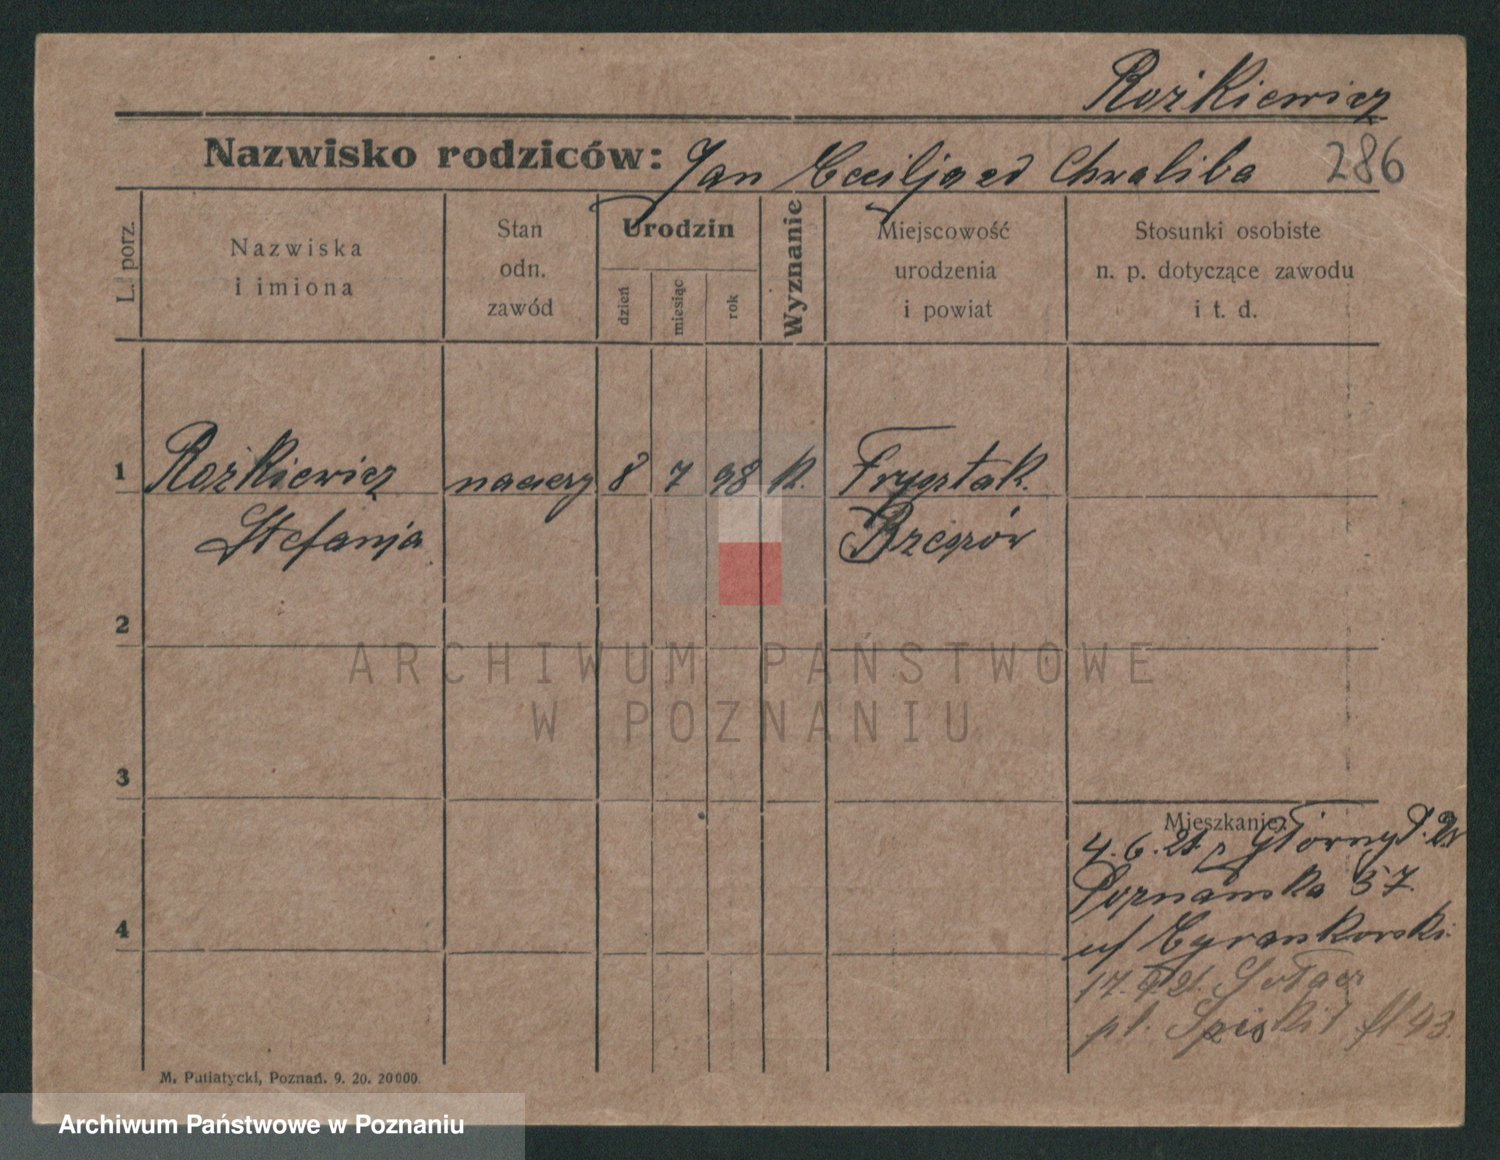 Rożkiewicz
286
Nazwisko rodziców: Jan Cecilja zd Chwaliba
L. porz.
Nazwiska
i imiona
Stan
odn.
zawód
Urodzin
dzień
miesiąc
rok
Wyznanie
Miejscowość
urodzenia
i powiat
Stosunki osobiste
n. p. dotyczące zawodu
i t. d.
1 Rożkiewicz 8 7 98 k. Frysztak.
Stefanja
2
3
4
Mieszkanie:
4. 6. 21.
Poznańska 57.
u/ Cyrankowski.
17. 9 21. Sołacz
pl. Spiski 43.
M. Putiatycki, Poznań. 9. 20. 20000.
ARCHIWUM PAŃSTWOWE
W POZNANIU
Archiwum Państwowe w Poznaniu